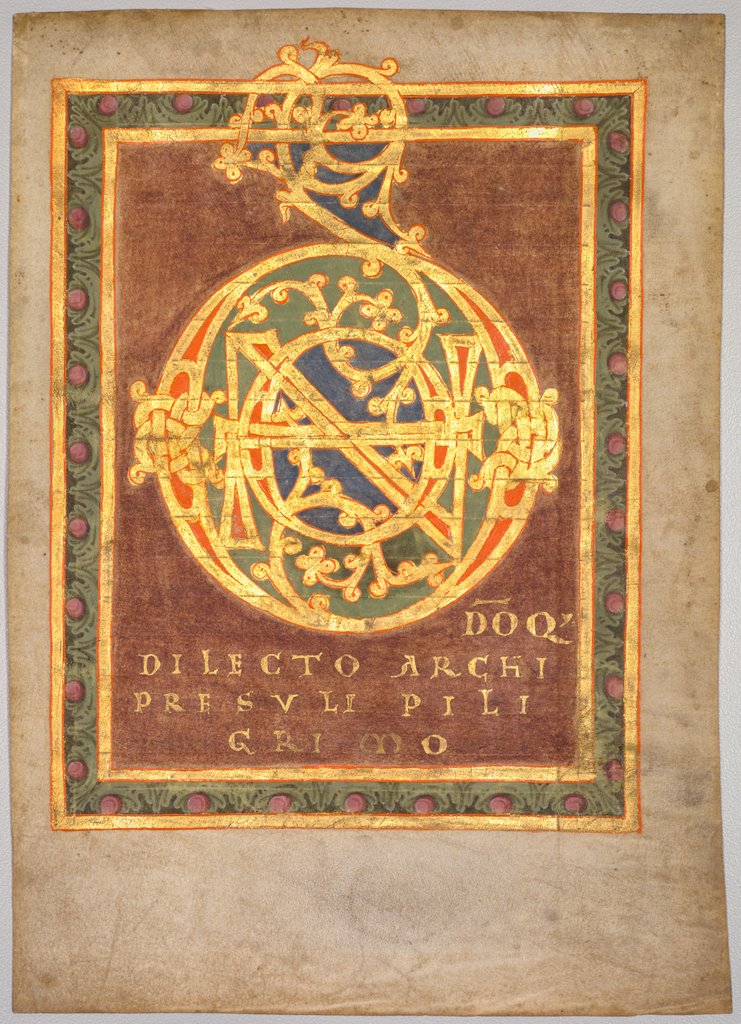 D̄O Q;
DILECTO ARCHI
PRESVLI PILI
GRIMO